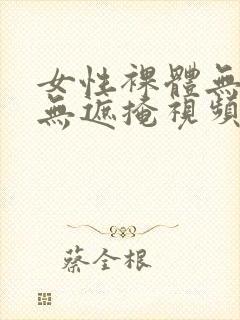 女性裸體無
無遮掩視頻
蔡全根